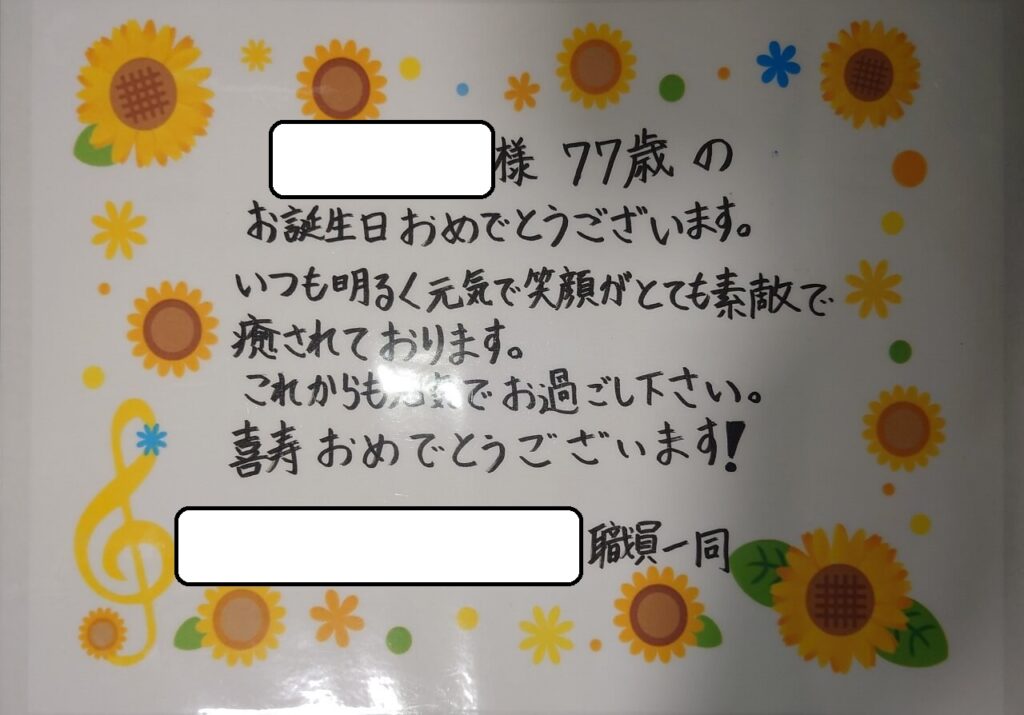 様 77歳の
お誕生日おめでとうございます。
いつも明るく元気で笑顔がとても素敵で
癒されております。
これからも元気でお過ごし下さい。
喜寿おめでとうございます!
職員一同